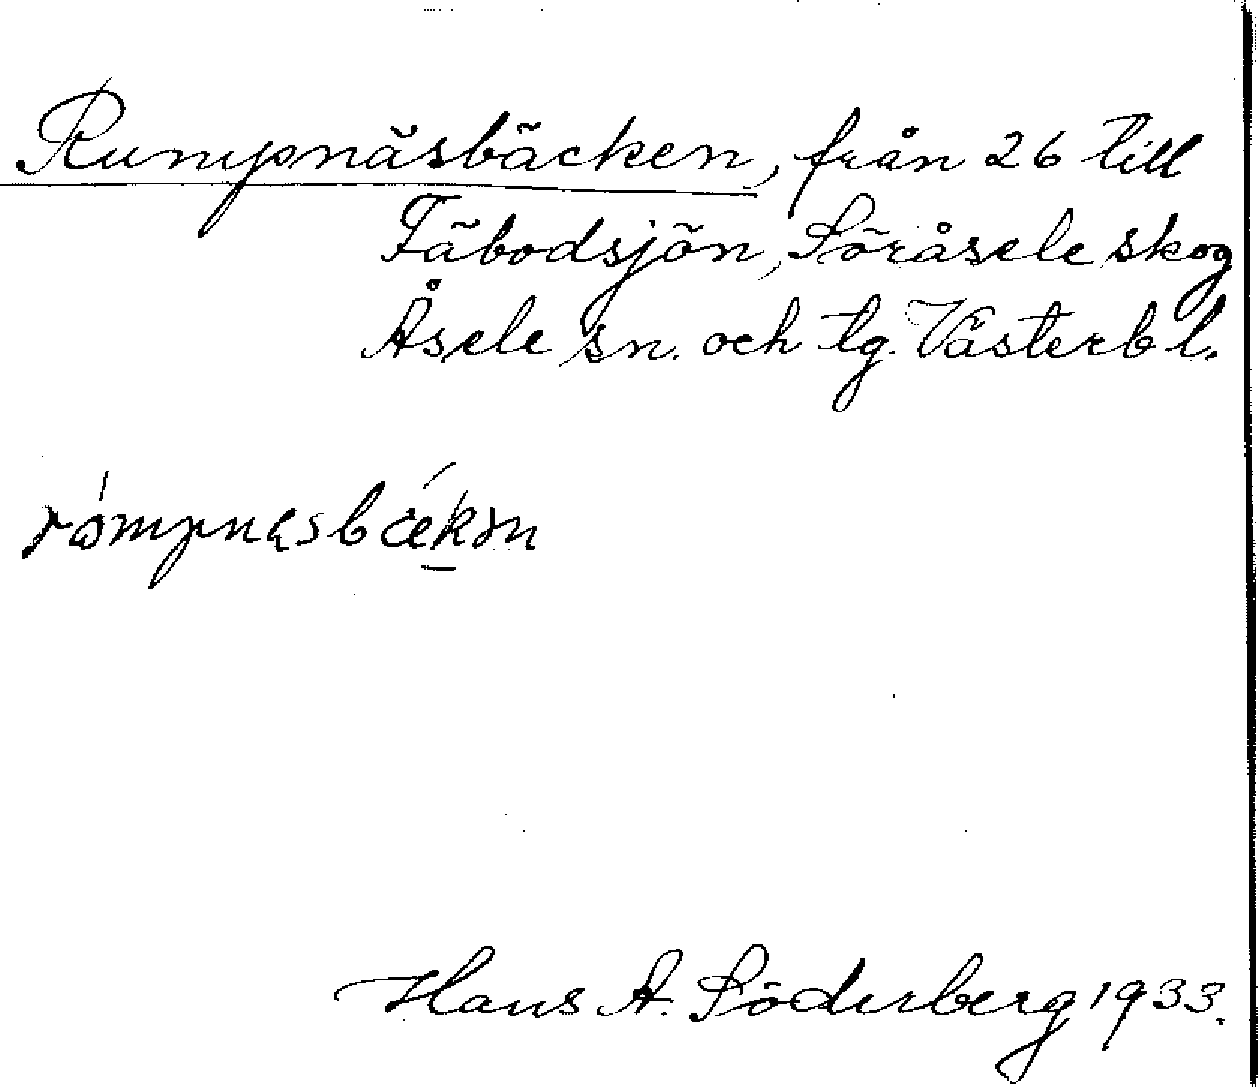 Rumpnäsbäcken, från 26 till
Fäbodsjön, Söråsele skog
Åsele sn. och tg. Västerb l.
Hans A. Söderberg 1933.